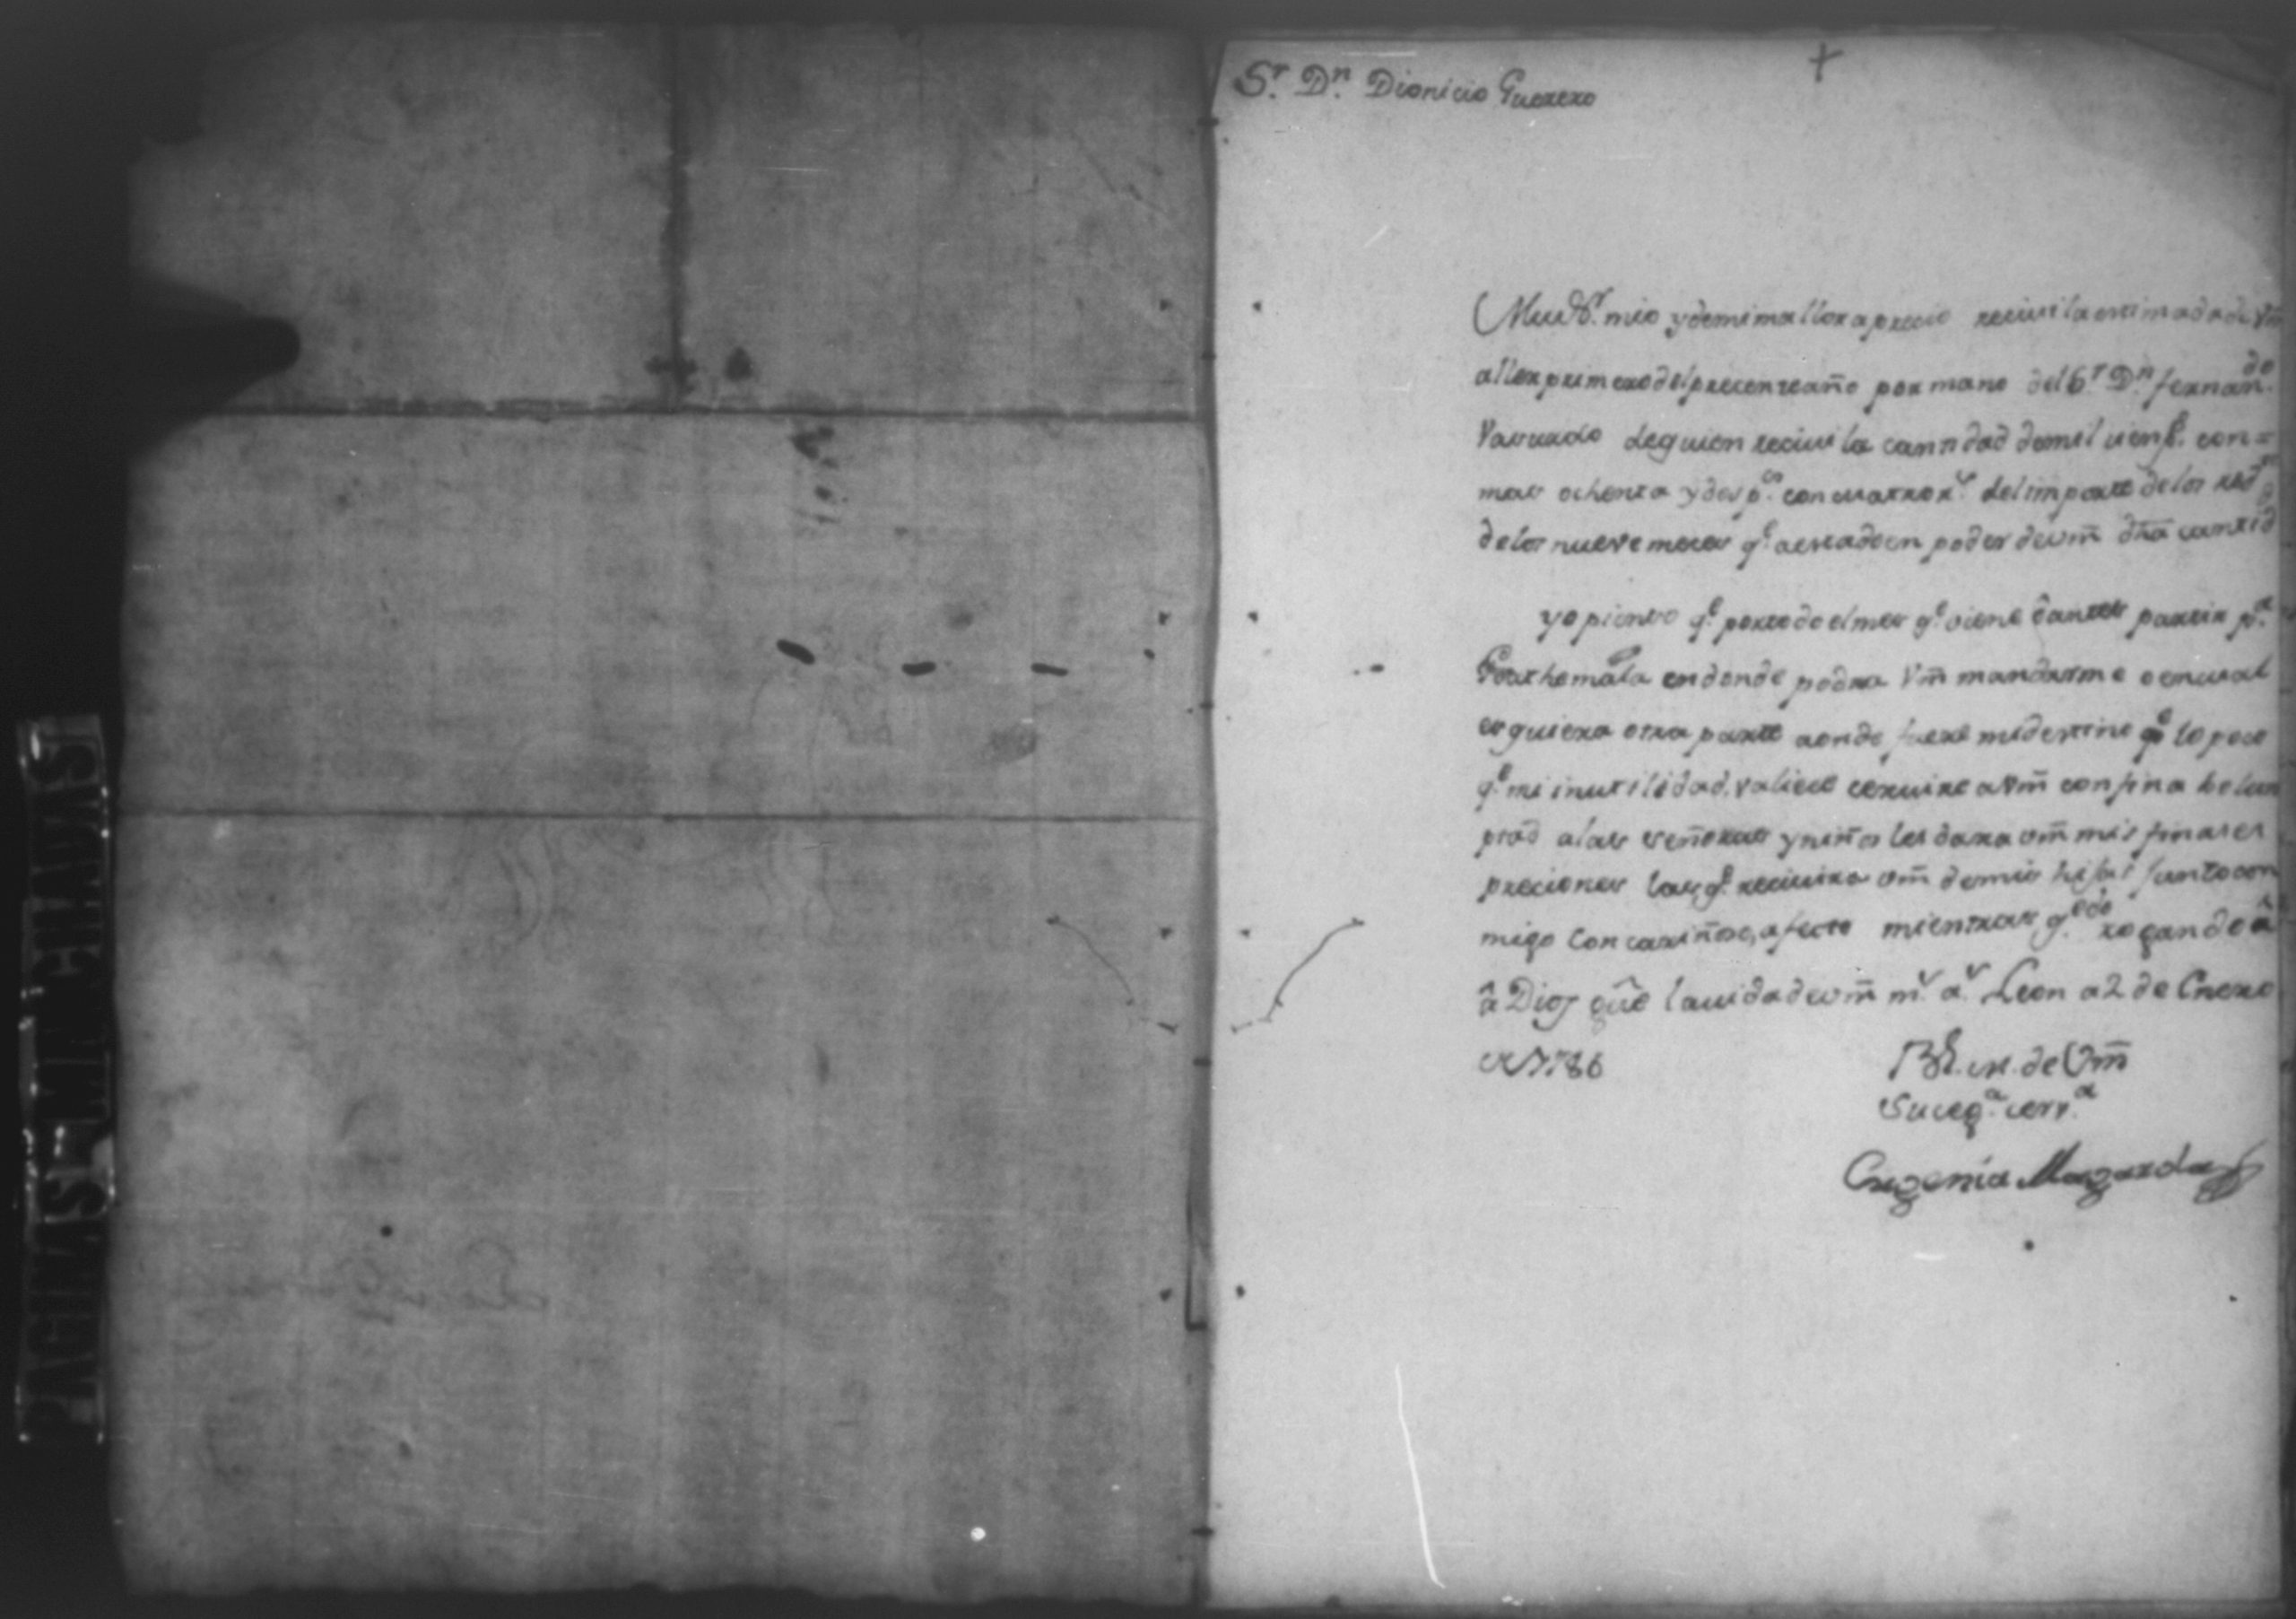 +
Sr. Dn. Dionicio Guerrero
Mui Sr. mio y de mi mallor aprecio recivi la estimada de Vm̃
a llos primero del precente año por mano del Sr. Dn. fernando.
de quien recivi la cantidad de mil cien ps. con
mas ochenta y dos ps. con cuatro rs. del importe de los red
de los nueve meces qe. a estado en poder de vm̃ dha cantid
yo pienso qe. por todo el mes qe. viene ô antes partir pa.
Goathemala en donde podra Vm̃ mandarme o en cual
es quiera otra parte aonde fuere mi destino qe lo poco
qe. mi inutilidad, valiere cervire a Vm̃ con fina bolun
ptad a las señoras y niños les dara vm̃ mis finas es
preciones las qe. recivira vm̃ de mis hijas junto con
migo con cariñoso, afecto mientras, qedo rogando â
â Dios gûe la vida de vm̃ ms. as. Leon a 2 de Enero
de 1786
BL. M. de Vm̃
Su cega. cerva.
Eugenia Magarda
PAGINAS